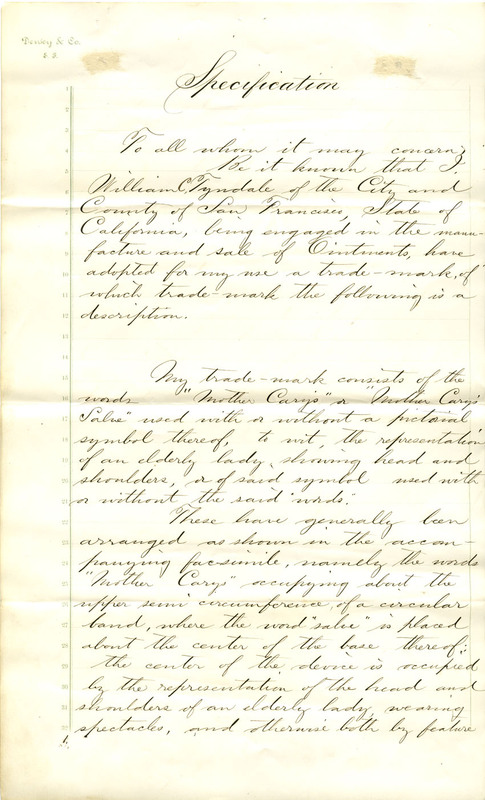 Dewey & Co.
S. F.
Specification
To all whom it may concern;
Be it known that I,
William C. Tyndale of the City and
County of San Francisco, State of
California, being engaged in the manu-
facture and sale of Ointments, have
adopted for my use a trade-mark, of
which trade-mark the following is a
description.
My trade-mark consists of the
words "Mother Cary's" or "Mother Cary's
Salve" used with or without a pictorial
symbol thereof, to wit, the representation
of an elderly lady, showing head and
shoulders, or of said symbol used with
or without the said "words."
These have generally been
arranged as shown in the accom-
panying fac-simile, namely the words
"Mother Carys" occupying about the
upper semi circumference, of a circular
band, where the word "salve" is placed
about the center of the base thereof;
the center of the device is occupied
by the representation of the head and
shoulders of an elderly lady, wearing
spectacles, and otherwise both by feature
1.